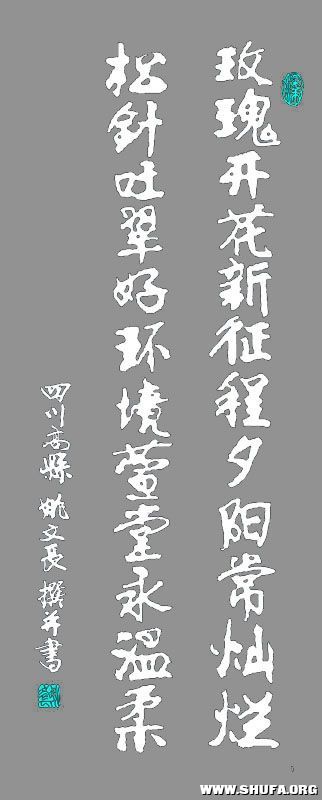 玫瑰开花新征程夕阳常灿烂
松針吐翠好环境萱堂永温柔
四川高縣 姚文長 撰并書
WWW.SHUFA.ORG